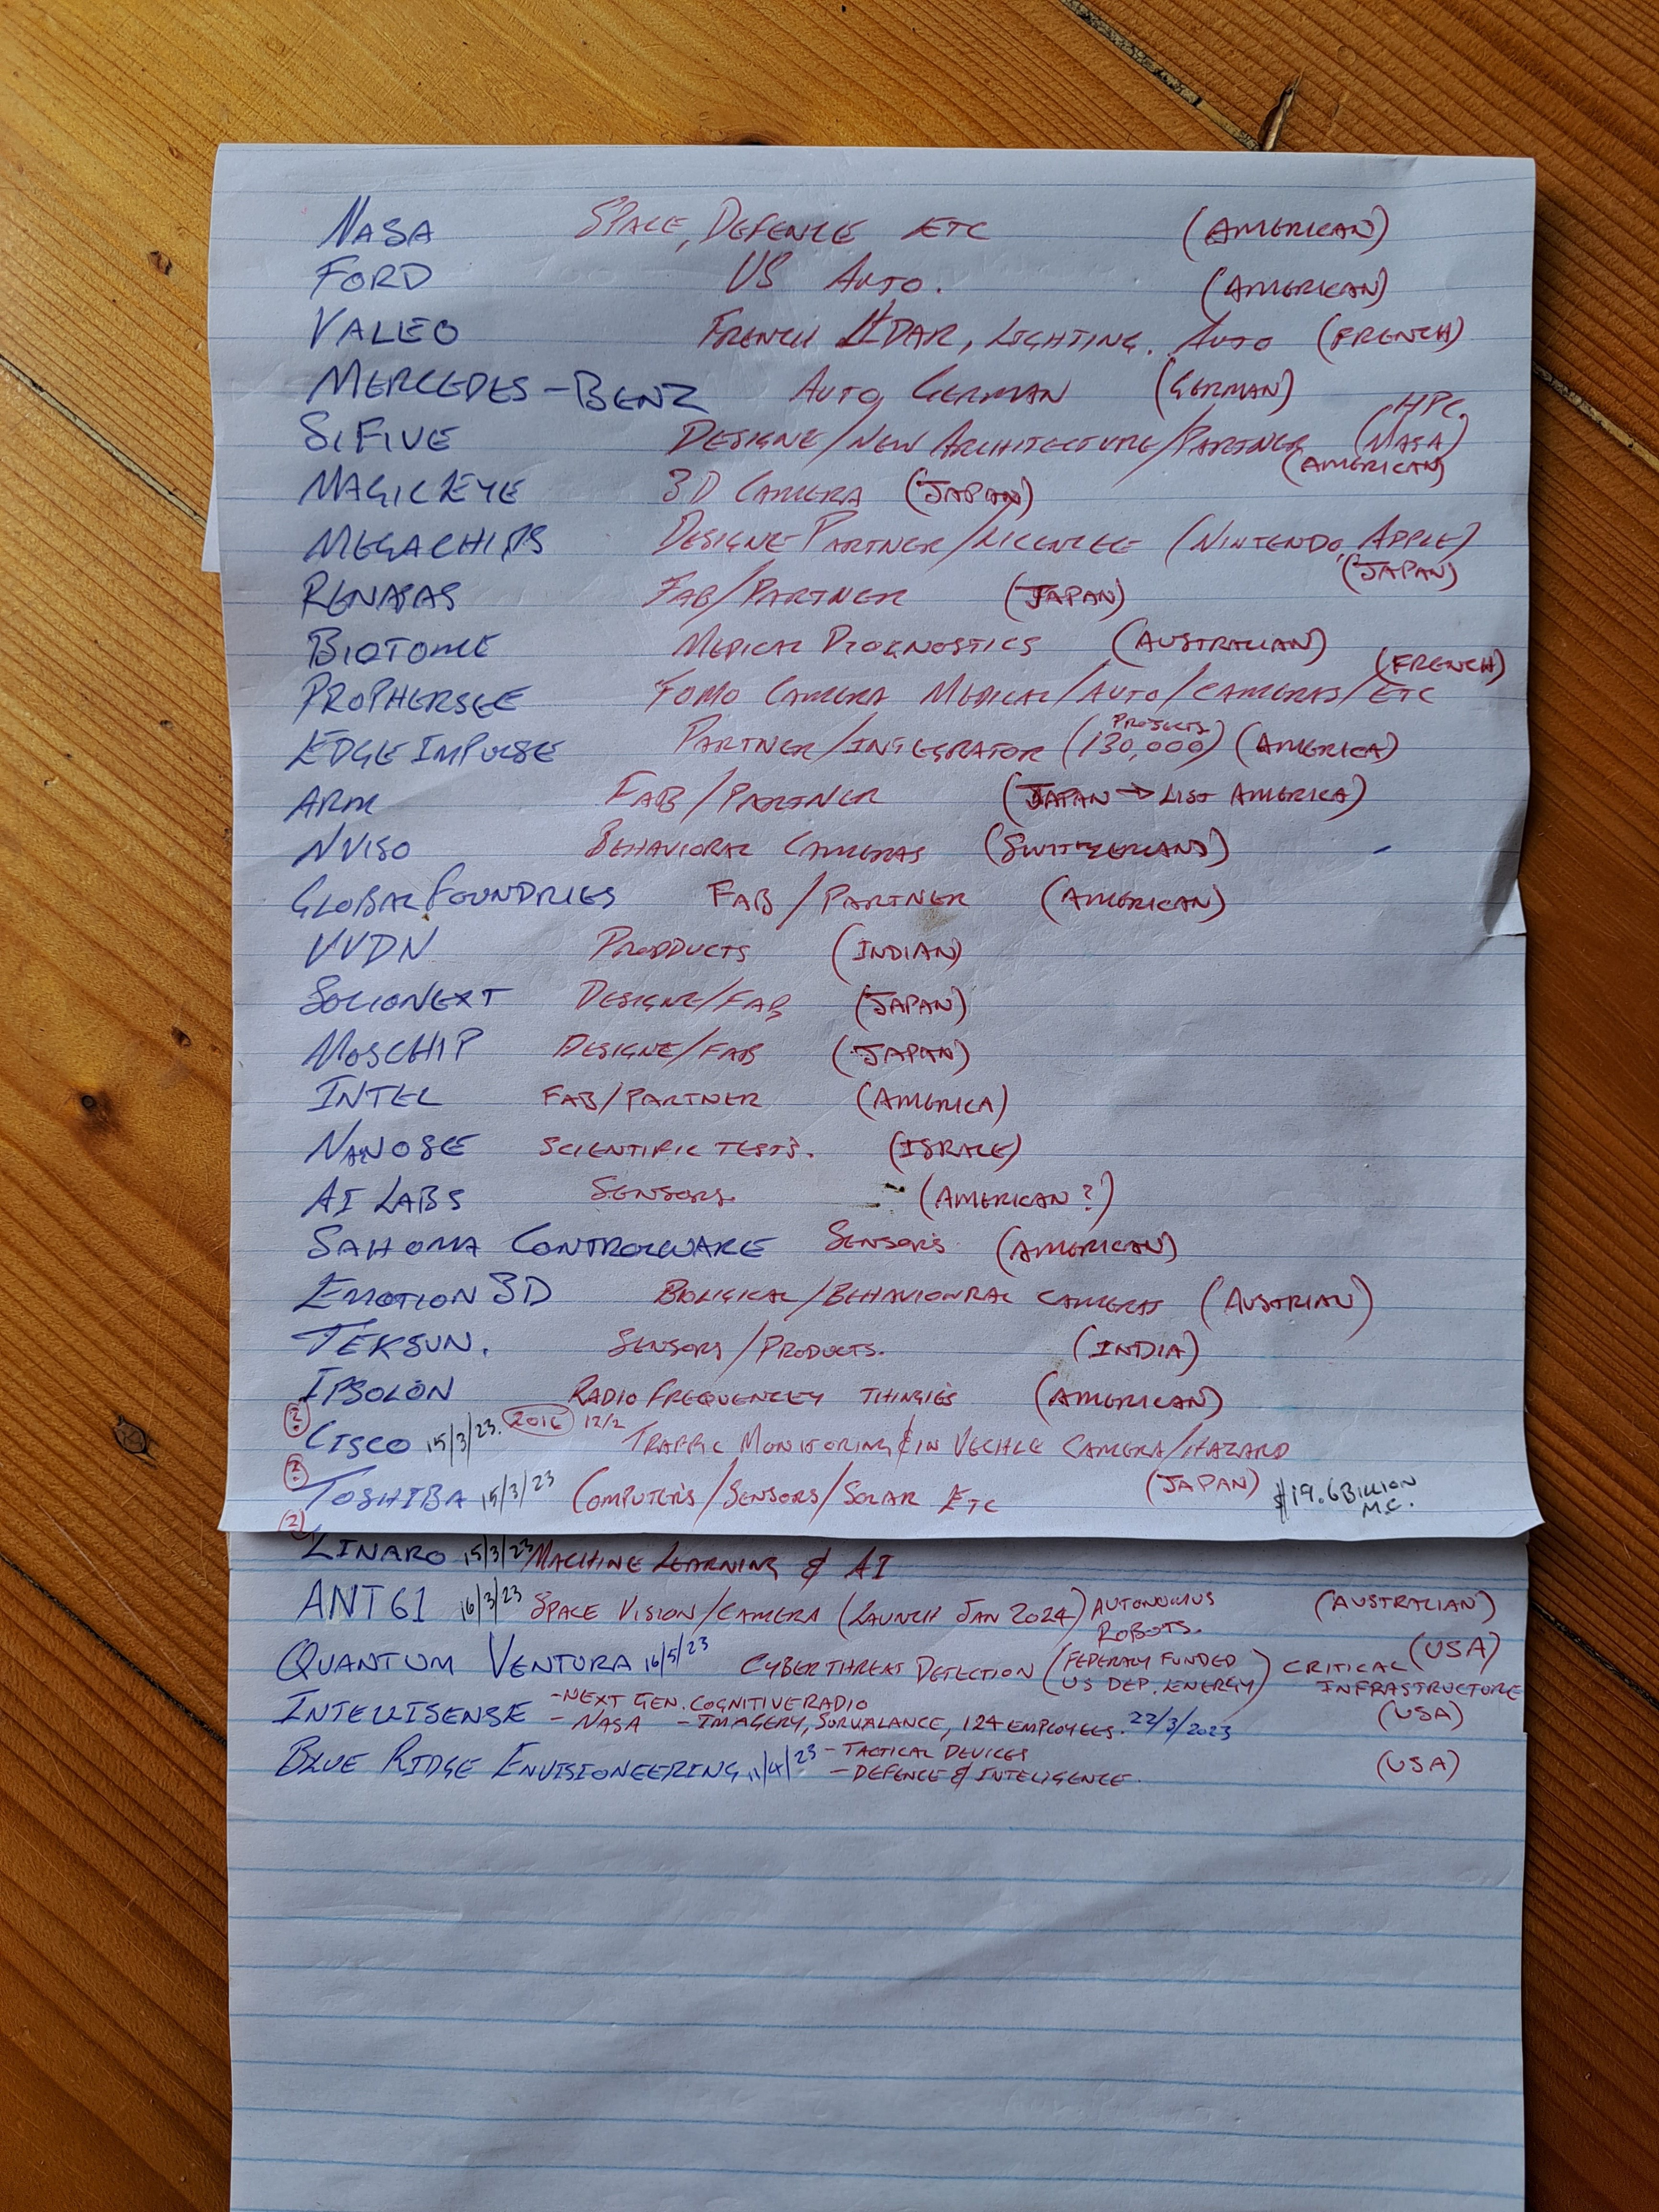 NASA SPACE, DEFENCE ETC (AMERICAN)
FORD US AUTO. (AMERICAN)
VALEO FRENCH LIDAR, LIGHTING. AUTO (FRENCH)
MERCEDES-BENZ AUTO GERMAN (GERMAN)
SIFIVE DESIGNE/NEW ARCHITECTURE/PARTNER (HPC, NASA)
(AMERICAN)
MAGICEYE 3D CAMERA (JAPAN)
MEGACHIPS DESIGNE PARTNER/LICENCEE (NINTENDO, APPLE)
(JAPAN)
RENASAS FAB/PARTNER (JAPAN)
BIOTOME MEDICAL DIOGNOSTICS (AUSTRALIAN)
(FRENCH)
PROPHERSEE FOMO CAMERA MEDICAL/AUTO/CAMERAS/ETC
EDGE IMPULSE PARTNER/INTEGRATOR (130,000 PROJECTS) (AMERICA)
ARM FAB/PARTNER (JAPAN → LIST AMERICA)
NVISO BEHAVIORAL CAMERAS (SWITZERLAND)
GLOBAL FOUNDRIES FAB/PARTNER (AMERICAN)
VVDN PRODDUCTS (INDIAN)
SOCIONEXT DESIGNE/FAB (JAPAN)
MOSCHIP DESIGNE/FAB (JAPAN)
INTEL FAB/PARTNER (AMERICA)
NANOSE SCIENTIFIC TESTS. (ISRALE)
AI LABS SENSORS. (AMERICAN?)
SAHOMA CONTROLWARE SENSORS (AMERICAN)
EMOTION 3D BIOLIGICAL/BEHAVIOURAL CAMERAS (AUSTRIAN)
TEKSUN. SENSORS/PRODUCTS. (INDIA)
IPSOLON RADIO FREQUENCEY THINGIES (AMERICAN)
? CISCO 15/3/23. 2016 12/2 TRAFFIC MONITORING & IN VECHLE CAMERA/HAZARD
? TOSHIBA 15/3/23 COMPUTERS/SENSORS/SOLAR ETC (JAPAN) $19.6 BILLION M.C.
? LINARO 15/3/23 MACHINE LEARNING & AI
ANT61 16/3/23 SPACE VISION/CAMERA (LAUNCH JAN 2024) AUTONOMUS ROBOTS. (AUSTRALIAN)
QUANTUM VENTURA 16/5/23 CYBERTHREAT DETECTION (FEDERALY FUNDED US DEP. ENERGY) CRITICAL INFRASTRUCTURE (USA)
INTELLISENSE -NEXT GEN. COGNITIVE RADIO
- NASA - IMAGERY, SURVALANCE, 124 EMPLOYEES. 22/3/2023 (USA)
BLUE RIDGE ENVISIONEERING 11/4/23 - TACTICAL DEVICES (USA)
- DEFENCE & INTELIGENCE.